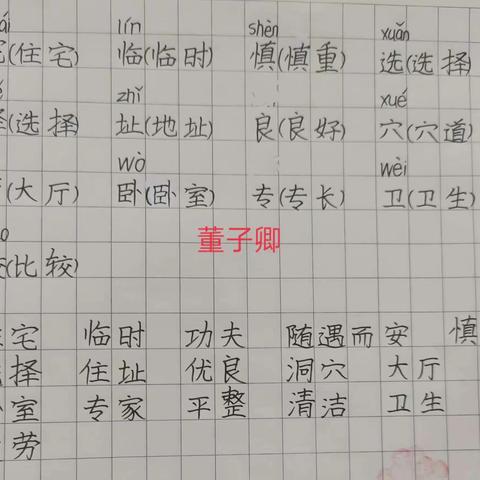 lín shèn xuǎn
(住宅) 临(临时) 慎(慎重) 选(选择)
zhǐ xué
(选择) 址(地址) 良(良好) 穴(穴道)
wò wèi
(大厅) 卧(卧室) 专(专长) 卫(卫生)
董子卿
(比较)
宅 临时 功夫 随遇而安 慎
择 住址 优良 洞穴 大厅
室 专家 平整 清洁 卫生
劳